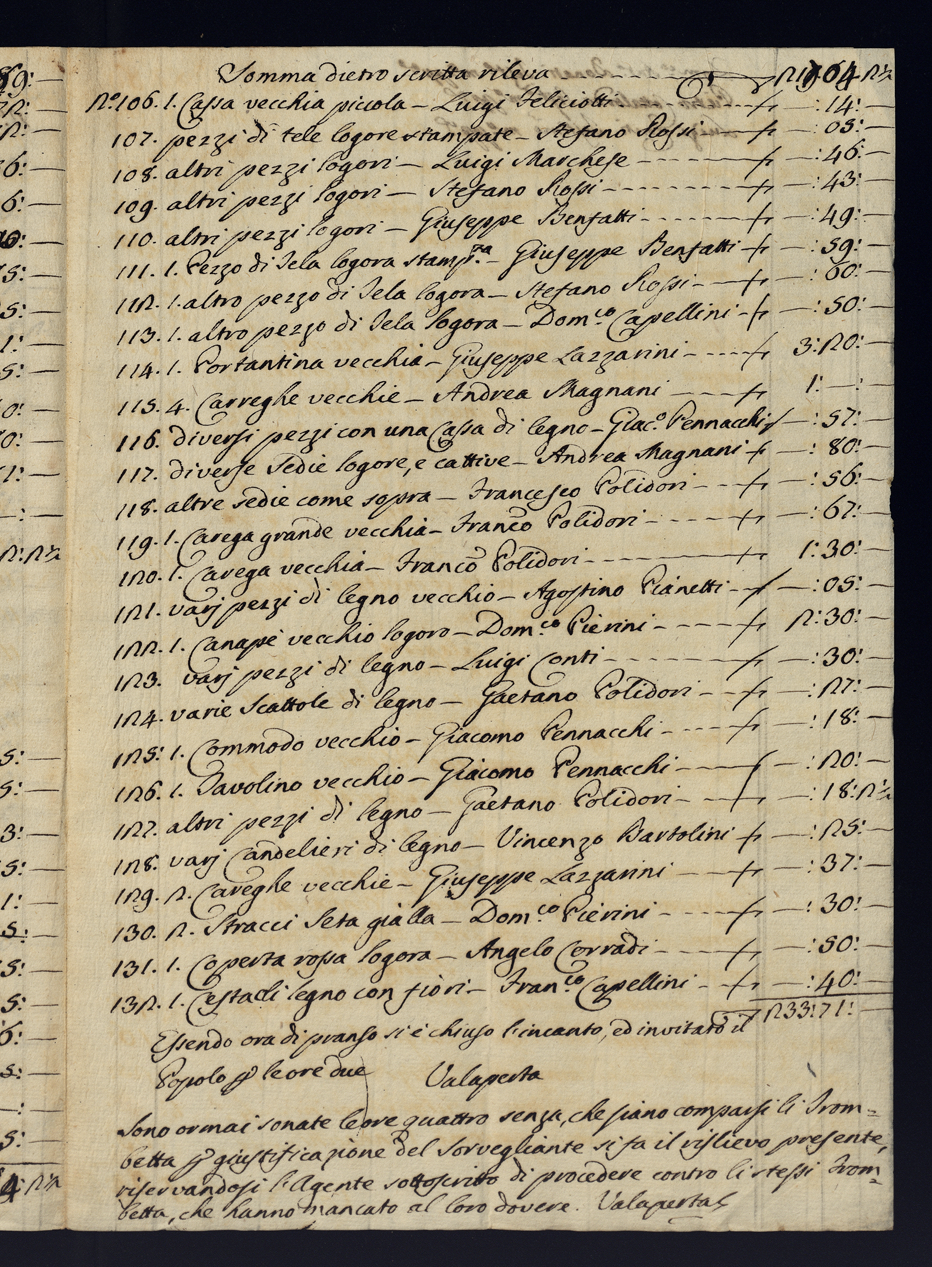 Somma dietro scritta rileva
N.º 106. 1. Cassa vecchia piccola — Luigi Feliciotti — : 14:
107. pezzi di tele logore stampate — Stefano Rossi — : 05:
108. altri pezzi logori — Luigi Marchese — : 46:
109. altri pezzi logori — Stefano Rossi — : 43:
110. altri pezzi logori — Giuseppe Benfatti — : 49:
111. 1. Pezzo di Tela logora stamp.ta — Giuseppe Benfatti — : 59:
112. 1. altro pezzo di Tela logora — Stefano Rossi — : 60:
113. 1. altro pezzo di Tela logora — Dom.co Capellini — : 50:
114. 1. Portantina vecchia — Giuseppe Lazzarini — 3: 20:
115. 4. Carreghe vecchie — Andrea Magnani — 1: — :
116. diversi pezzi con una Cassa di legno — Giac.º Pennacchi — : 57:
117. diverse Sedie logore, e cattive — Andrea Magnani — : 80:
118. altre sedie come sopra — Francesco Polidori — : 56:
119. 1. Carega grande vecchia — Franc.º Polidori — : 67:
120. 1. Carega vecchia — Franc.º Polidori — 1: 30:
121. varj pezzi di legno vecchio — Agostino Pianetti — : 05:
122. 1. Canapè vecchio logoro — Dom.co Pierini — 2: 30:
123. varj pezzi di legno — Luigi Conti — : 30:
124. varie Scattole di legno — Gaetano Polidori — : 27:
125: 1. Commodo vecchio — Giacomo Pennacchi — : 18:
126. 1. Tavolino vecchio — Giacomo Pennacchi — : 20:
127. altri pezzi di legno — Gaetano Polidori — : 18: 2½
128. varj Candelieri di legno — Vincenzo Bartolini — : 25:
129. 2. Careghe vecchie — Giuseppe Lazzarini — : 37:
130. 2. Stracci Seta gialla — Dom.co Pierini — : 30:
131. 1. Coperta rossa logora — Angelo Corradi — : 50:
132. 1. Cesta di legno con fiori — Fran.co Capellini — : 40:
233: 71:
Essendo ora di pranso si è chiuso l'incanto, ed invitato il
Popolo p le ore due Valaperta
Sono ormai sonate le ore quattro senza, che siano comparsi li Trom=
betta p giustificazione del Sorvegliante si fa il rislievo presente,
riservandosi l'Agente sottoscritto di procedere contro li stessi Trom=
betta, che hanno mancato al loro dovere. Valaperta